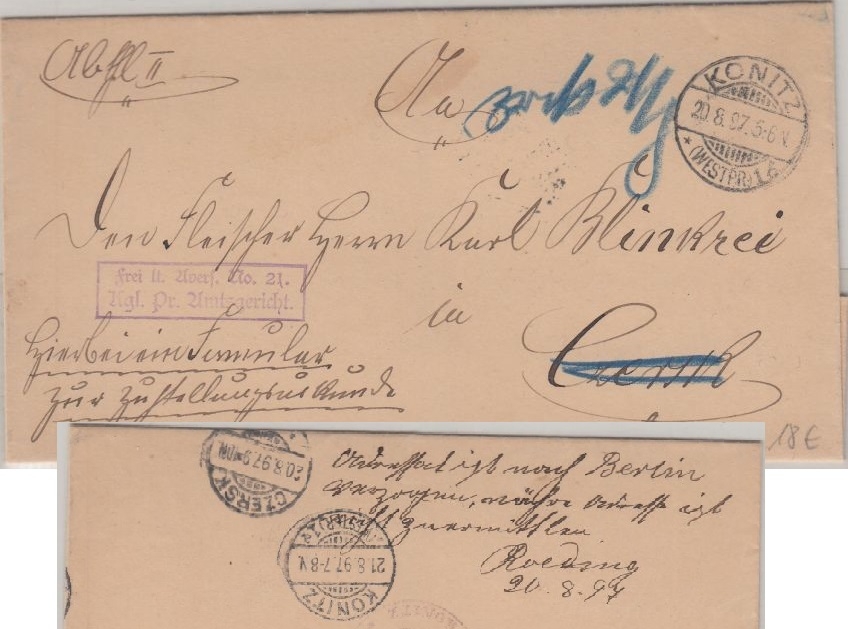 Abtl II
An
zurück
KONITZ
20.8.97.5-6V.
* (WESTPR.) 1 c
Den Fleischer Herrn Karl Klinkrei
Frei lt. Avers. No. 21.
Kgl. Pr. Amtsgericht.
in
Hierbei ein Formular
zur Zustellungsurkunde
Czersk
18 €
CZERSK
20.8.97.9-10N.
Adressat ist nach Berlin
verzogen, nähre Adresse ist
nicht zu ermitteln
Roeding
20.8.97
KONITZ
21.8.97.7-8V.
(WESTPR.)
KONITZ